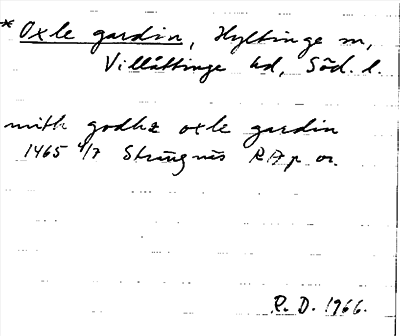 * Oxle gardin, Hyltinge sn,
Villåttinge hd, Söd. l.
mith godhz oxle gardin
1465 4/7 Strängnäs RAp or.
R. D. 1966.